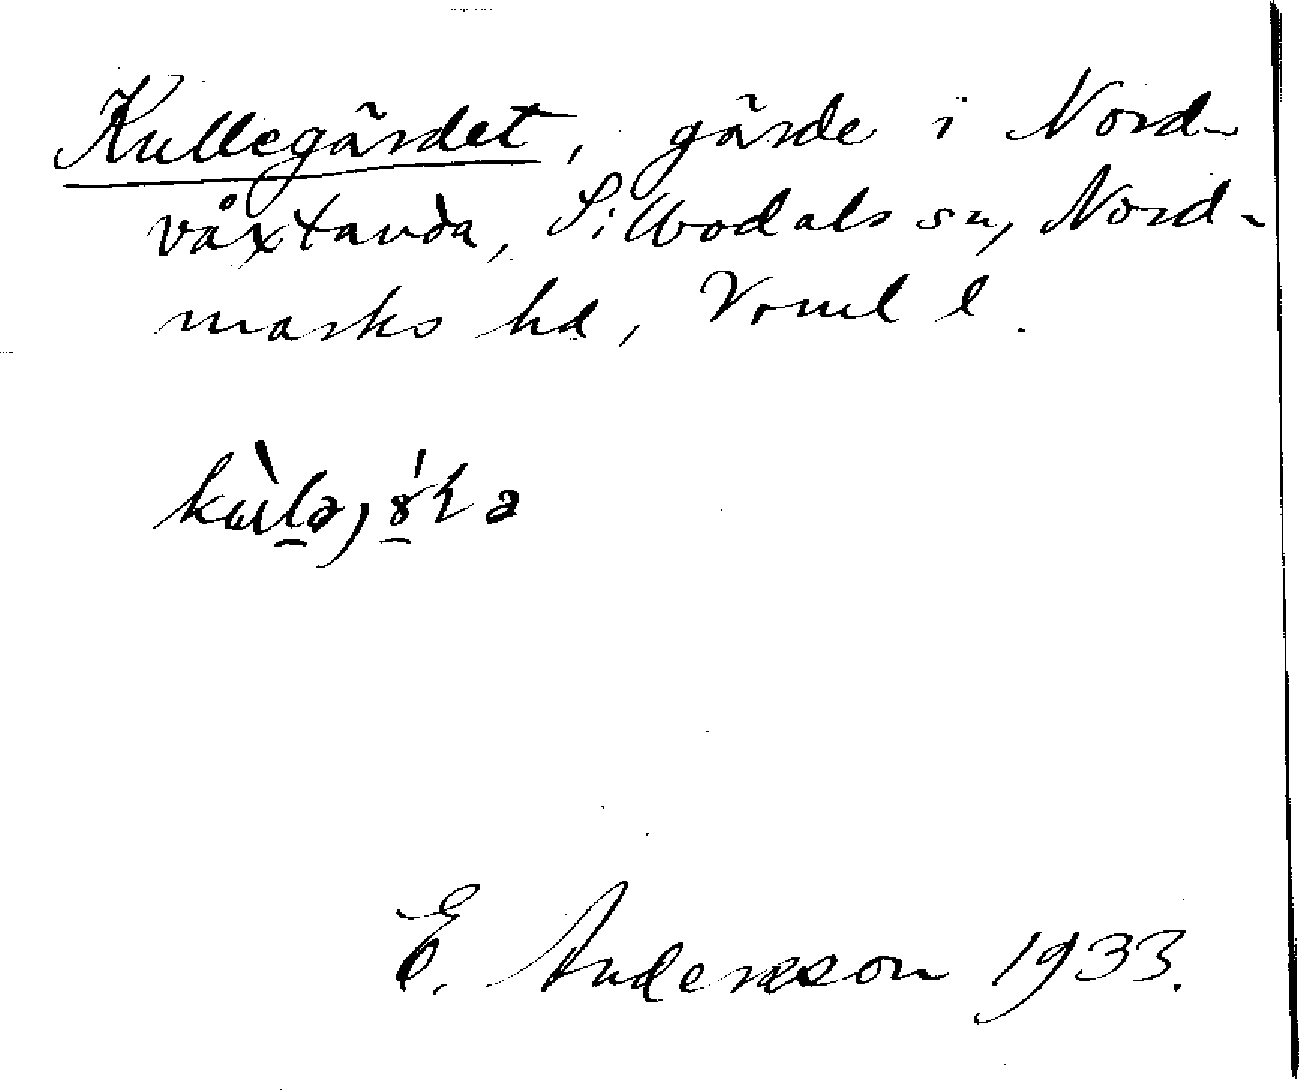 Kullegärdet, gärde i Nord-
våxtanda, Silbodals sn, Nord-
marks hd, Vrml l.
E. Andersson 1933.